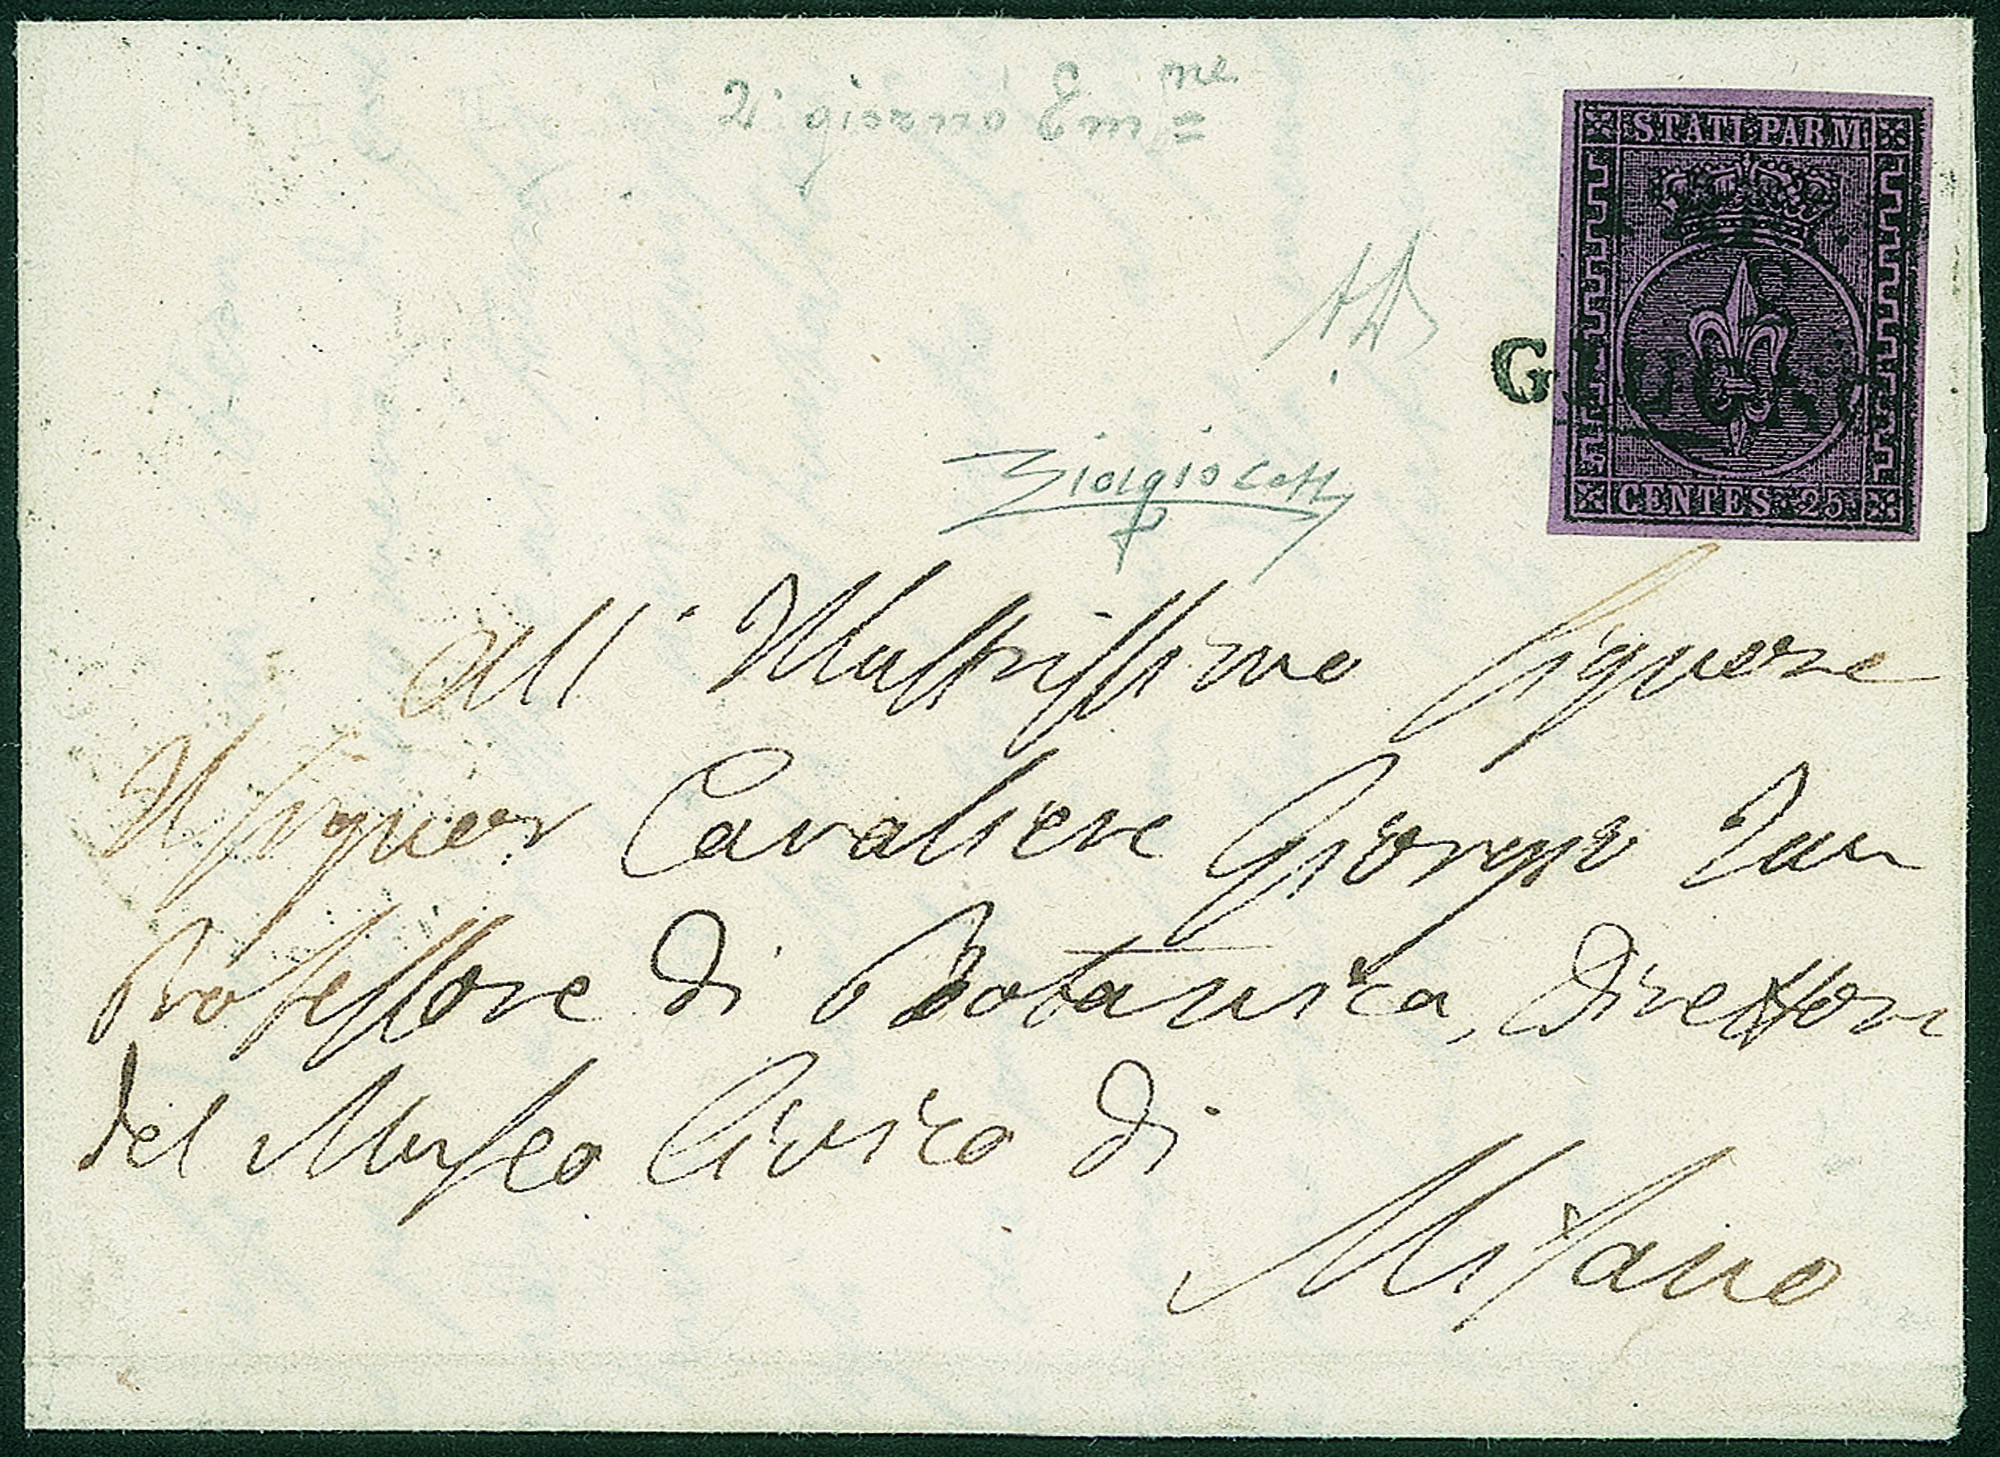 2° giorno Em.ne
STATI PARM
CENTES. 25
Giorgio Colla
All' Illustrissimo Signore
Il Signor Cavaliere Giorgio Jan
Professore di Botanica, Direttore
del Museo Civico di
Milano